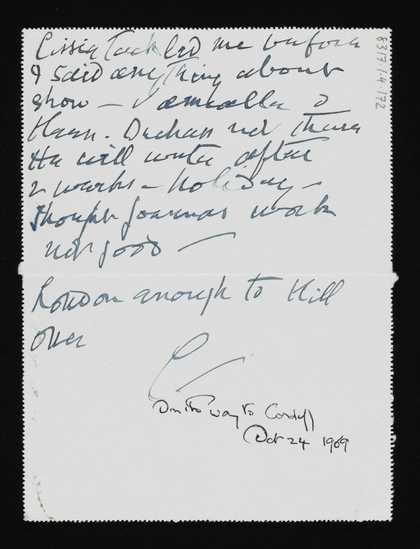 Cissie tackled me before
I said anything about
show — &
Haas. Duchess not there
He will write after
2 weeks — holiday —
thought journas work
not good —
London enough to kill
one
On its way to Cardiff
Oct 24 1969
8317/1/4/172